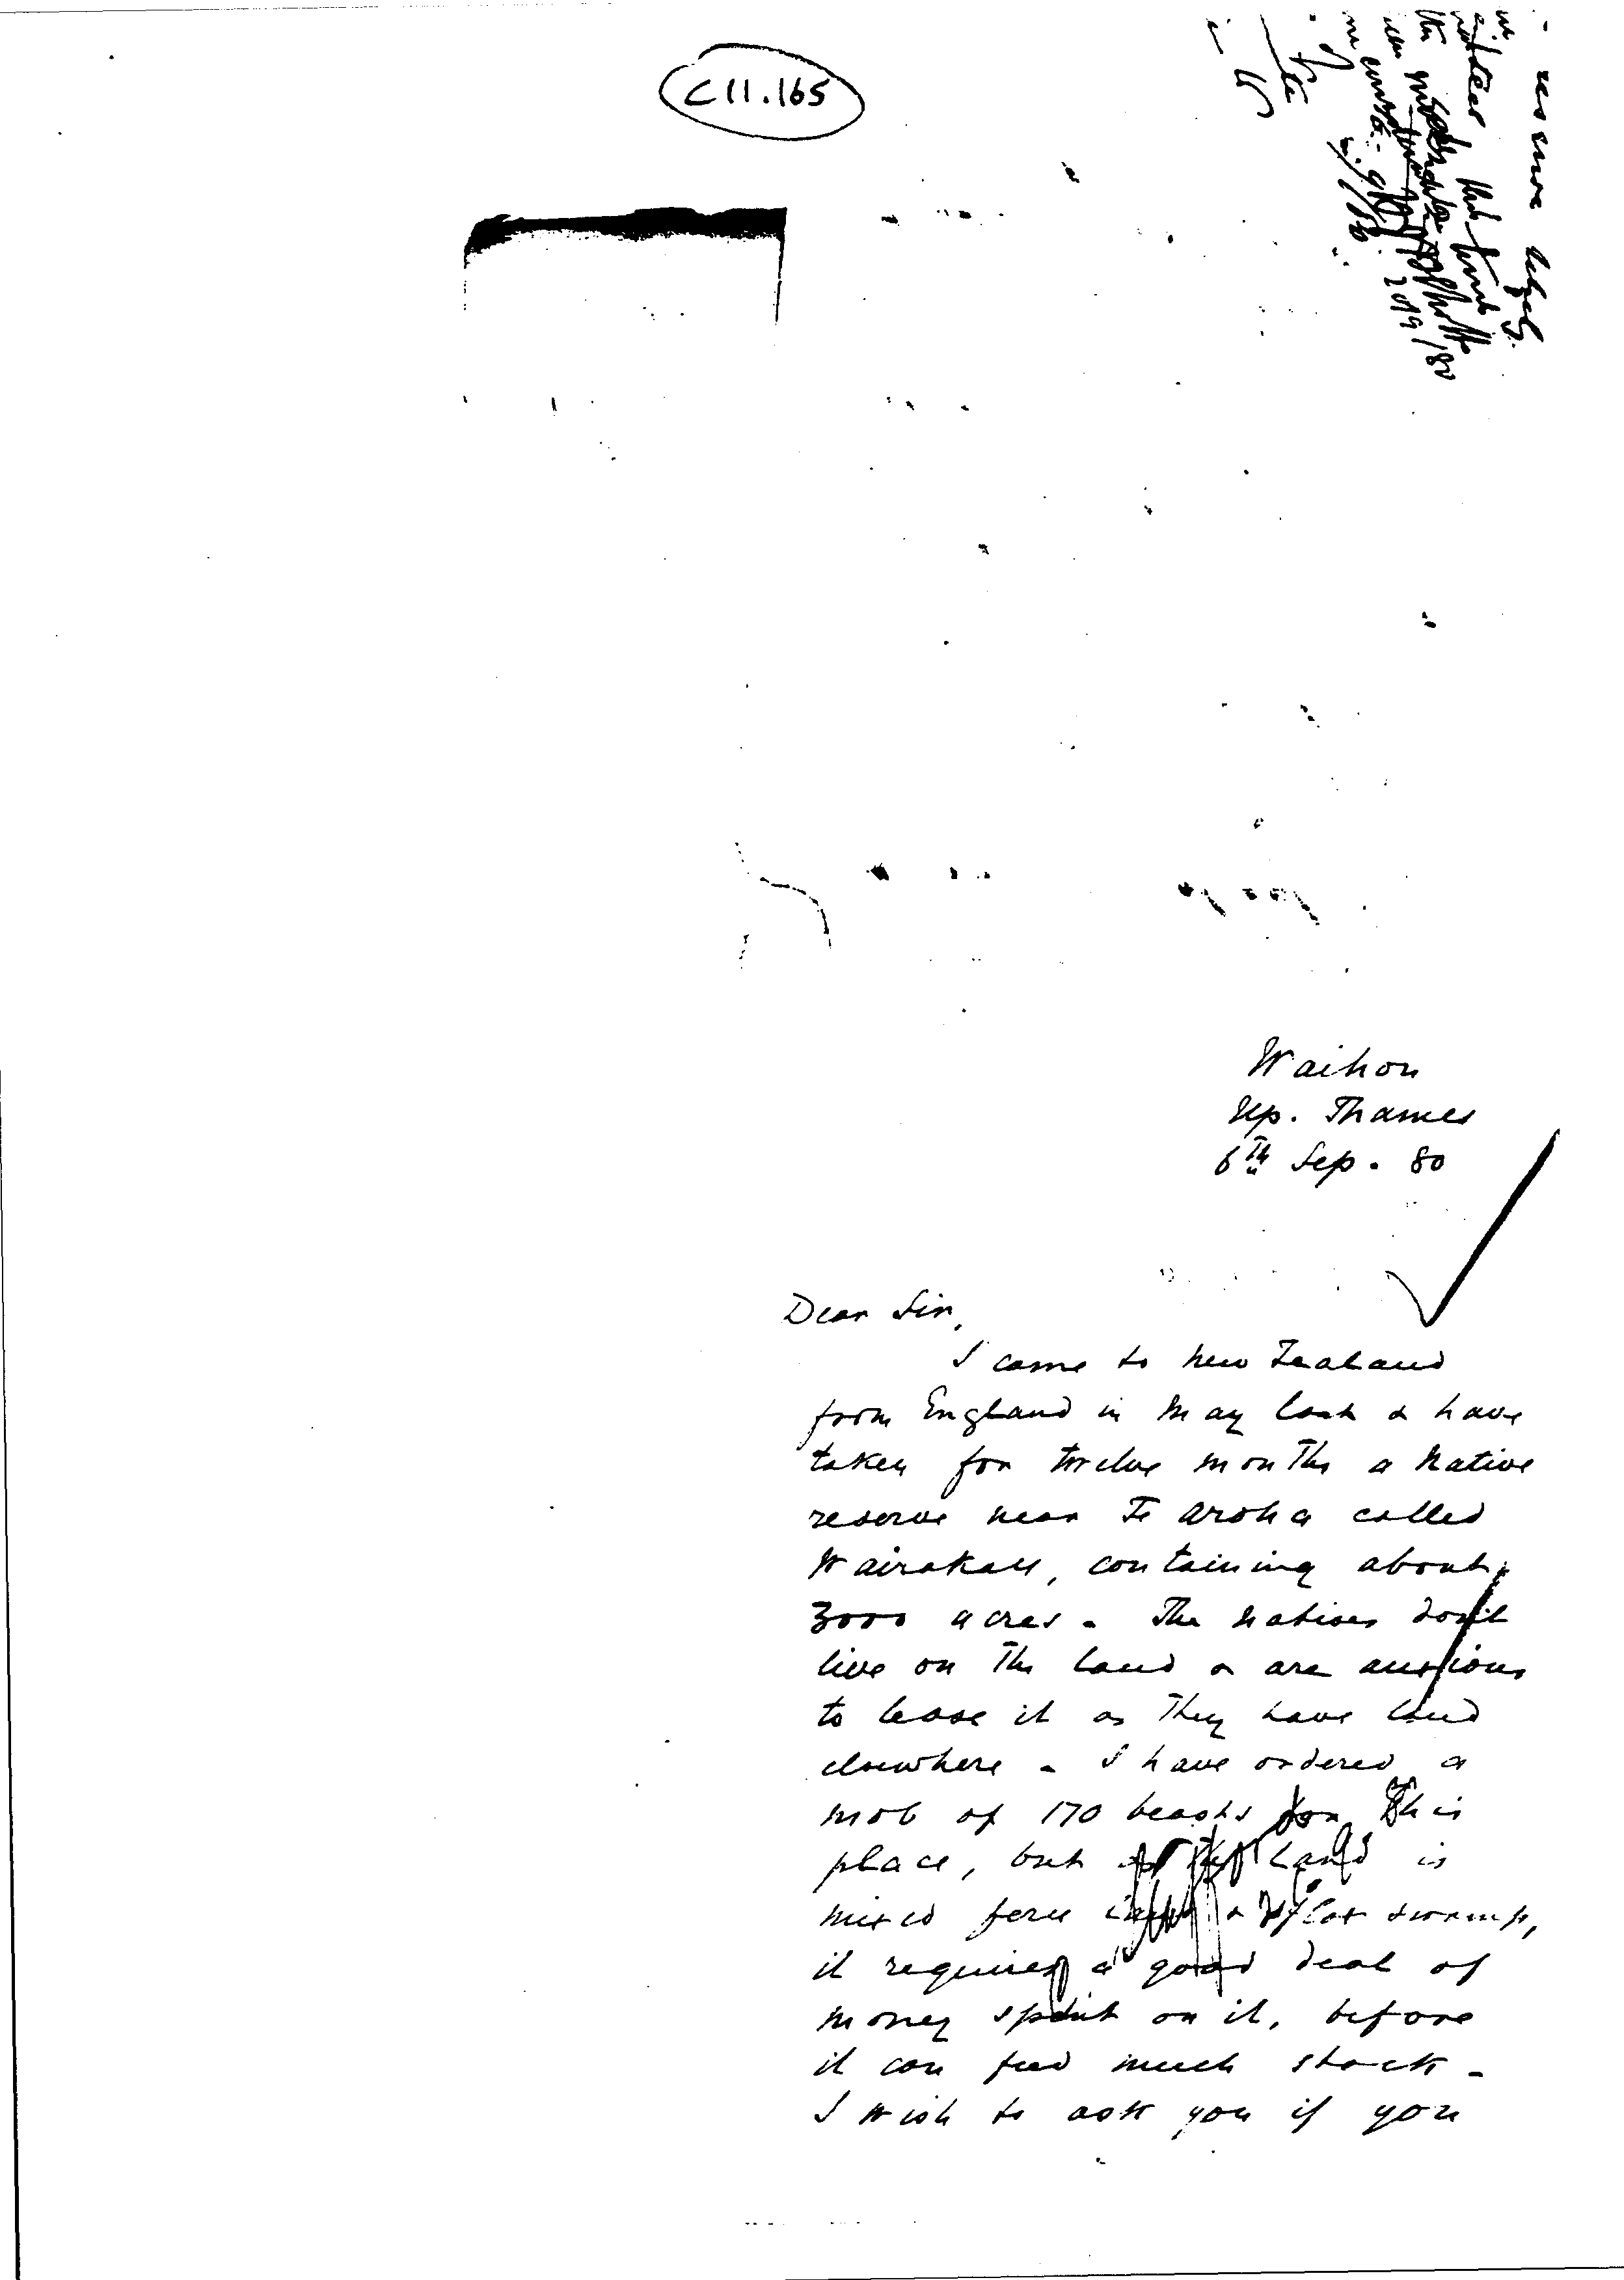 C11.165
Waihou
Up. Thames
6th Sep. 80
Dear Sir,
I came to New Zealand
from England in May last & have
taken for twelve months a Native
reserve near Te Aroha called
Wairakau, containing about
3000 acres. The Natives don't
live on the land & are anxious
to lease it as they have land
elsewhere. I have ordered a
mob of 170 beasts for this
place, but land is
mixed fern & flax swamp,
it requires a good deal of
money spent on it, before
it can feed much stock.
I wish to ask you if you